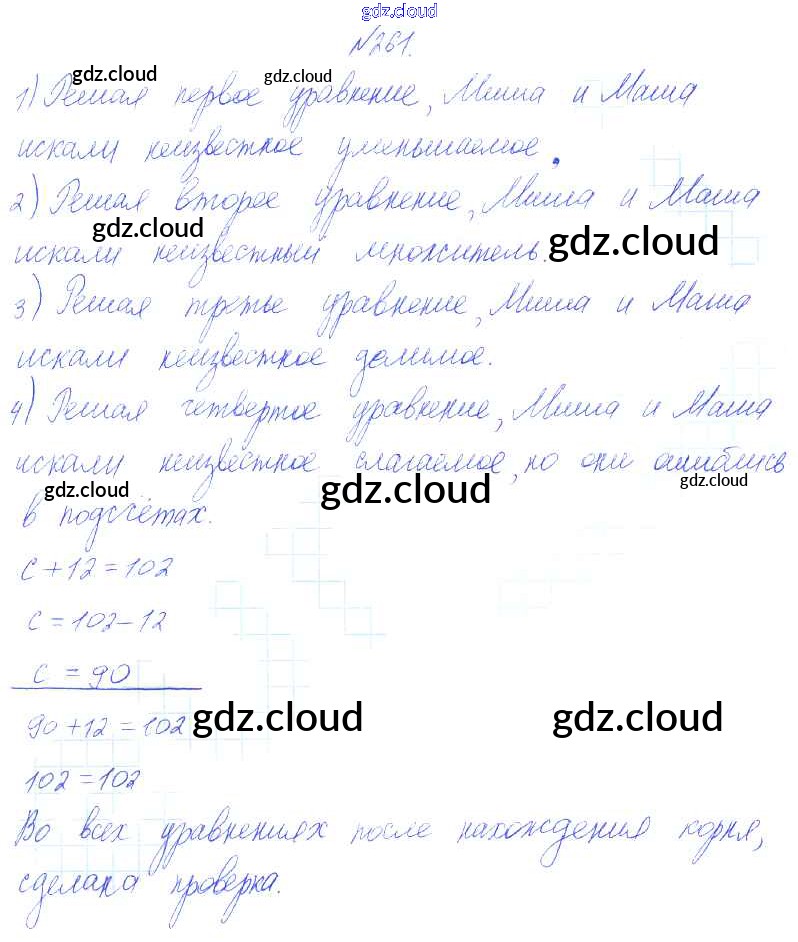 gdz.cloud
№261.
gdz.cloud gdz.cloud
1) Решая первое уравнение, Миша и Маша
искали неизвестное уменьшаемое.
2) Решая второе уравнение, Миша и Маша
gdz.cloud gdz.cloud
искали неизвестный множитель.
3) Решая третье уравнение, Миша и Маша
искали неизвестное делимое.
4) Решая четвертое уравнение, Миша и Маша
искали неизвестное слагаемое, но они ошиблись
gdz.cloud gdz.cloud gdz.cloud
в подсчётах.
c + 12 = 102
c = 102 - 12
c = 90
90 + 12 = 102
gdz.cloud gdz.cloud
102 = 102
Во всех уравнениях после нахождения корня,
сделана проверка.